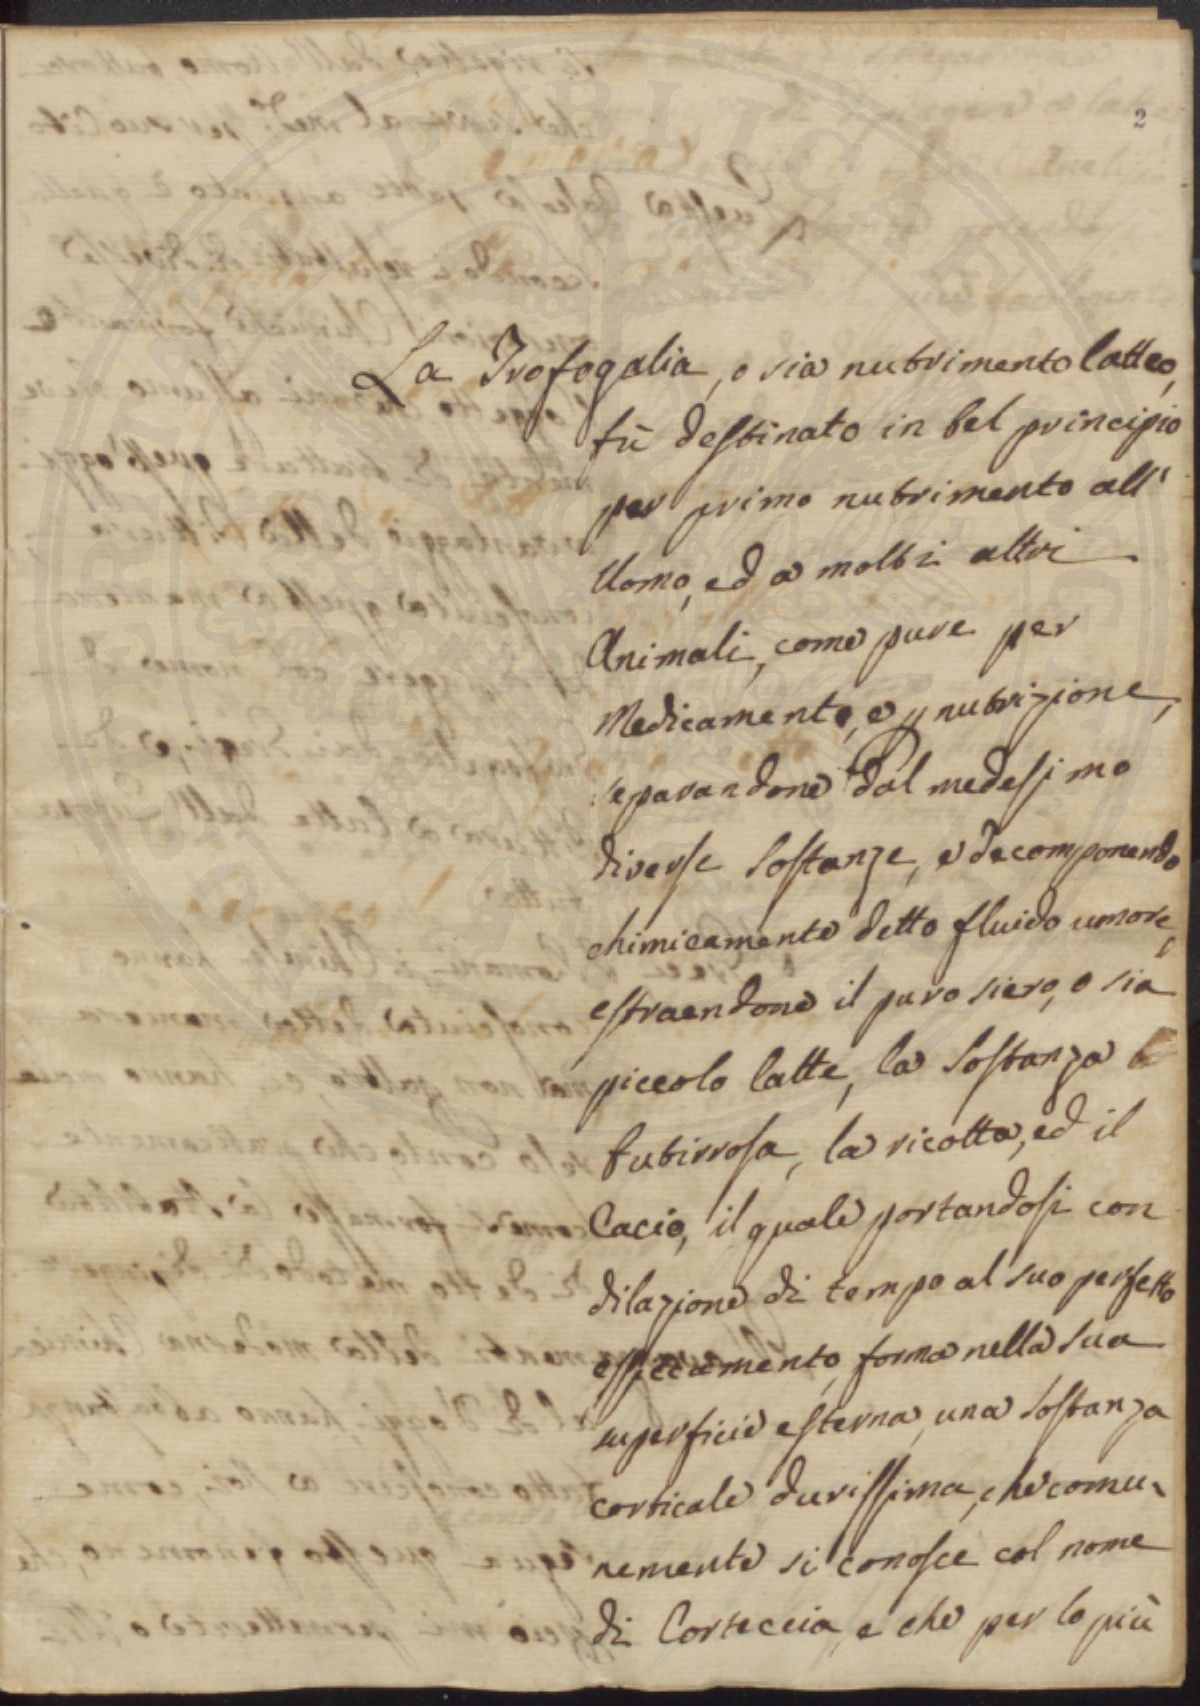 2
La Trofogalia, o sia nutrimento latteo,
fù destinato in bel principio
per primo nutrimento all'
Uomo, ed a molti altri
Animali, come pure per
Medicamento, e p nutrizione,
separandone dal medessimo
diverse sostanze, e decomponendo
chimicamente detto fluido umore,
estraendone il puro siero, o sia
piccolo latte, la sostanza
butirrosa, la ricotta, ed il
Cacio, il quale portandosi con
dilazione di tempo al suo perfetto
essiccamento, forma nella sua
superficie esterna, una sostanza
corticale durissima, che comu-
nemente si conosce col nome
di Corteccia, e che per lo più